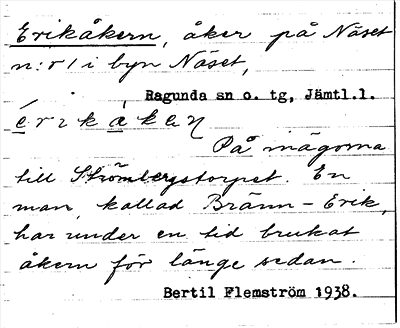 Erikåkern, åker på Näset
n:r 1 i byn Näset,
Ragunda sn o. tg, Jämtl.l.
På mägorna
till Strömbergstorpet. En
man, kallad Bränn-Erik,
har under en tid brukat
åkern för länge sedan.
Bertil Flemström 1938.